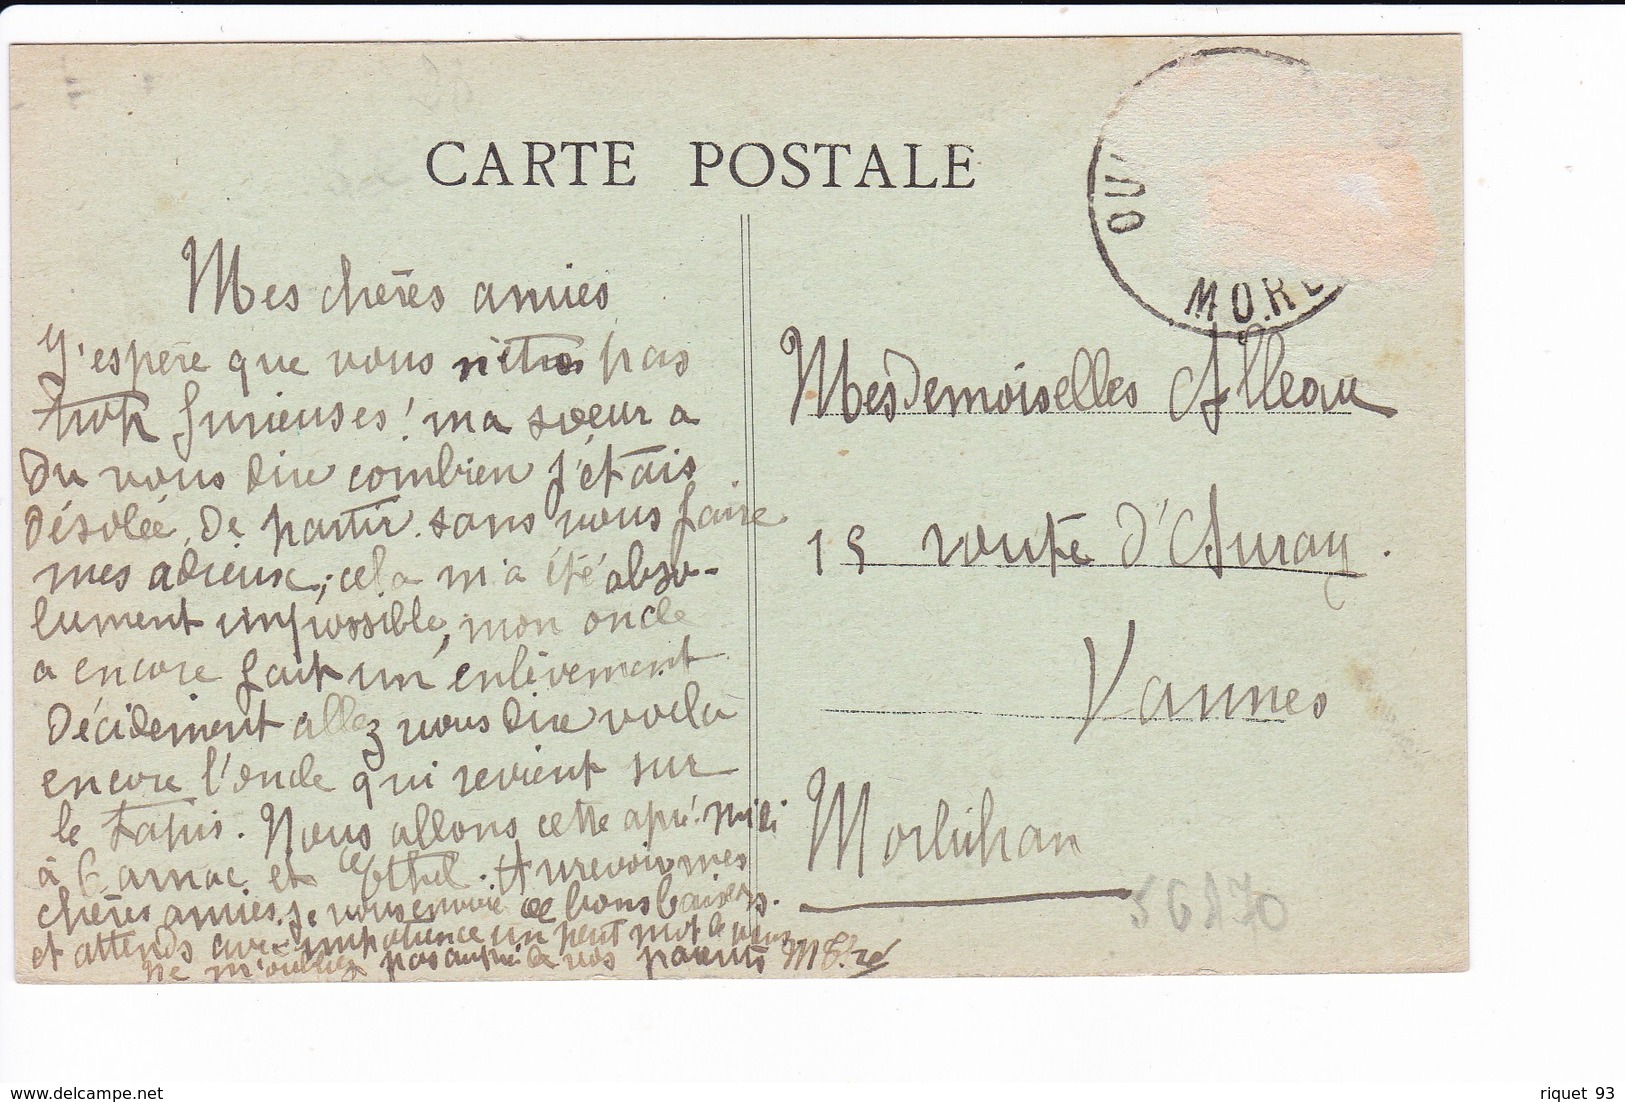 CARTE POSTALE
OU
MOR
Mes chères amies
J'espère que vous n'êtes pas
trop furieuses! ma sœur a
du vous dire combien j'étais
désolée de partir sans vous faire
mes adieux; cela m'a été abso-
lument impossible, mon oncle
a encore fait un enlèvement
Décidement allez vous dire voilà
encore l'oncle qui revient sur
le tapis. Nous allons cette après-midi
à Carnac et Ethel. Au revoir mes
chères amies. Je vous envoie de bons baisers.
et attends avec impatience un petit mot de vous
ne m'oubliez pas auprès de vos parents
MesDemoiselles Alleau
15 route d'Auray.
Vannes
Morbihan
56270
www.delcampe.net
riquet 93